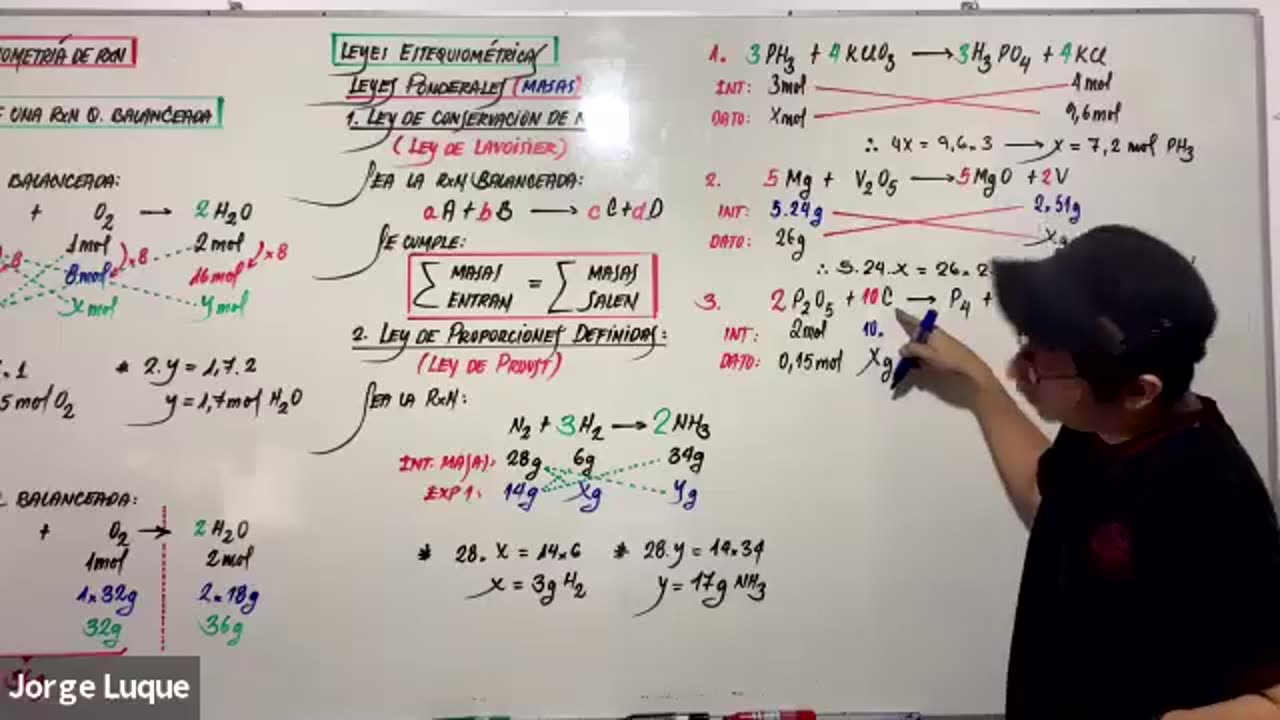 OMETRÍA DE RXN
E UNA RXN Q. BALANCEADA
BALANCEADA:
+ O₂ → 2H₂O
1mol 2mol
×8 8mol ×8 16mol ×8
Xmol Ymol
.1 * 2.y = 1,7.2
5molO₂ y = 1,7mol H₂O
BALANCEADA:
+ O₂ → 2H₂O
1mol 2mol
1×32g 2×18g
32g 36g
LEYES ESTEQUIOMÉTRICA
LEYES PONDERALES (MASAS)
1. LEY DE CONSERVACIÓN DE
(LEY DE LAVOISIER)
SEA LA RXN BALANCEADA:
aA + bB → cC + dD
SE CUMPLE:
∑ MASAS ENTRAN = ∑ MASAS SALEN
2. LEY DE PROPORCIONES DEFINIDAS:
(LEY DE PROUST)
SEA LA RXN:
N₂ + 3H₂ → 2NH₃
INT. MASA: 28g 6g 34g
EXP 1: 14g Xg Yg
* 28. X = 14×6 * 28.y = 14×34
x = 3g H₂ y = 17g NH₃
1. 3PH₃ + 4KClO₃ → 3H₃PO₄ + 4KCl
INT: 3mol 4mol
DATO: Xmol 9,6mol
∴ 4X = 9,6.3 → x = 7,2 mol PH₃
2. 5Mg + V₂O₅ → 5MgO + 2V
INT: 5.24g 2.51g
DATO: 26g Xg
∴ 5.24.X = 26.2
3. 2P₂O₅ + 10C → P₄ +
INT: 2mol 10.
DATO: 0,15mol Xg
Jorge Luque